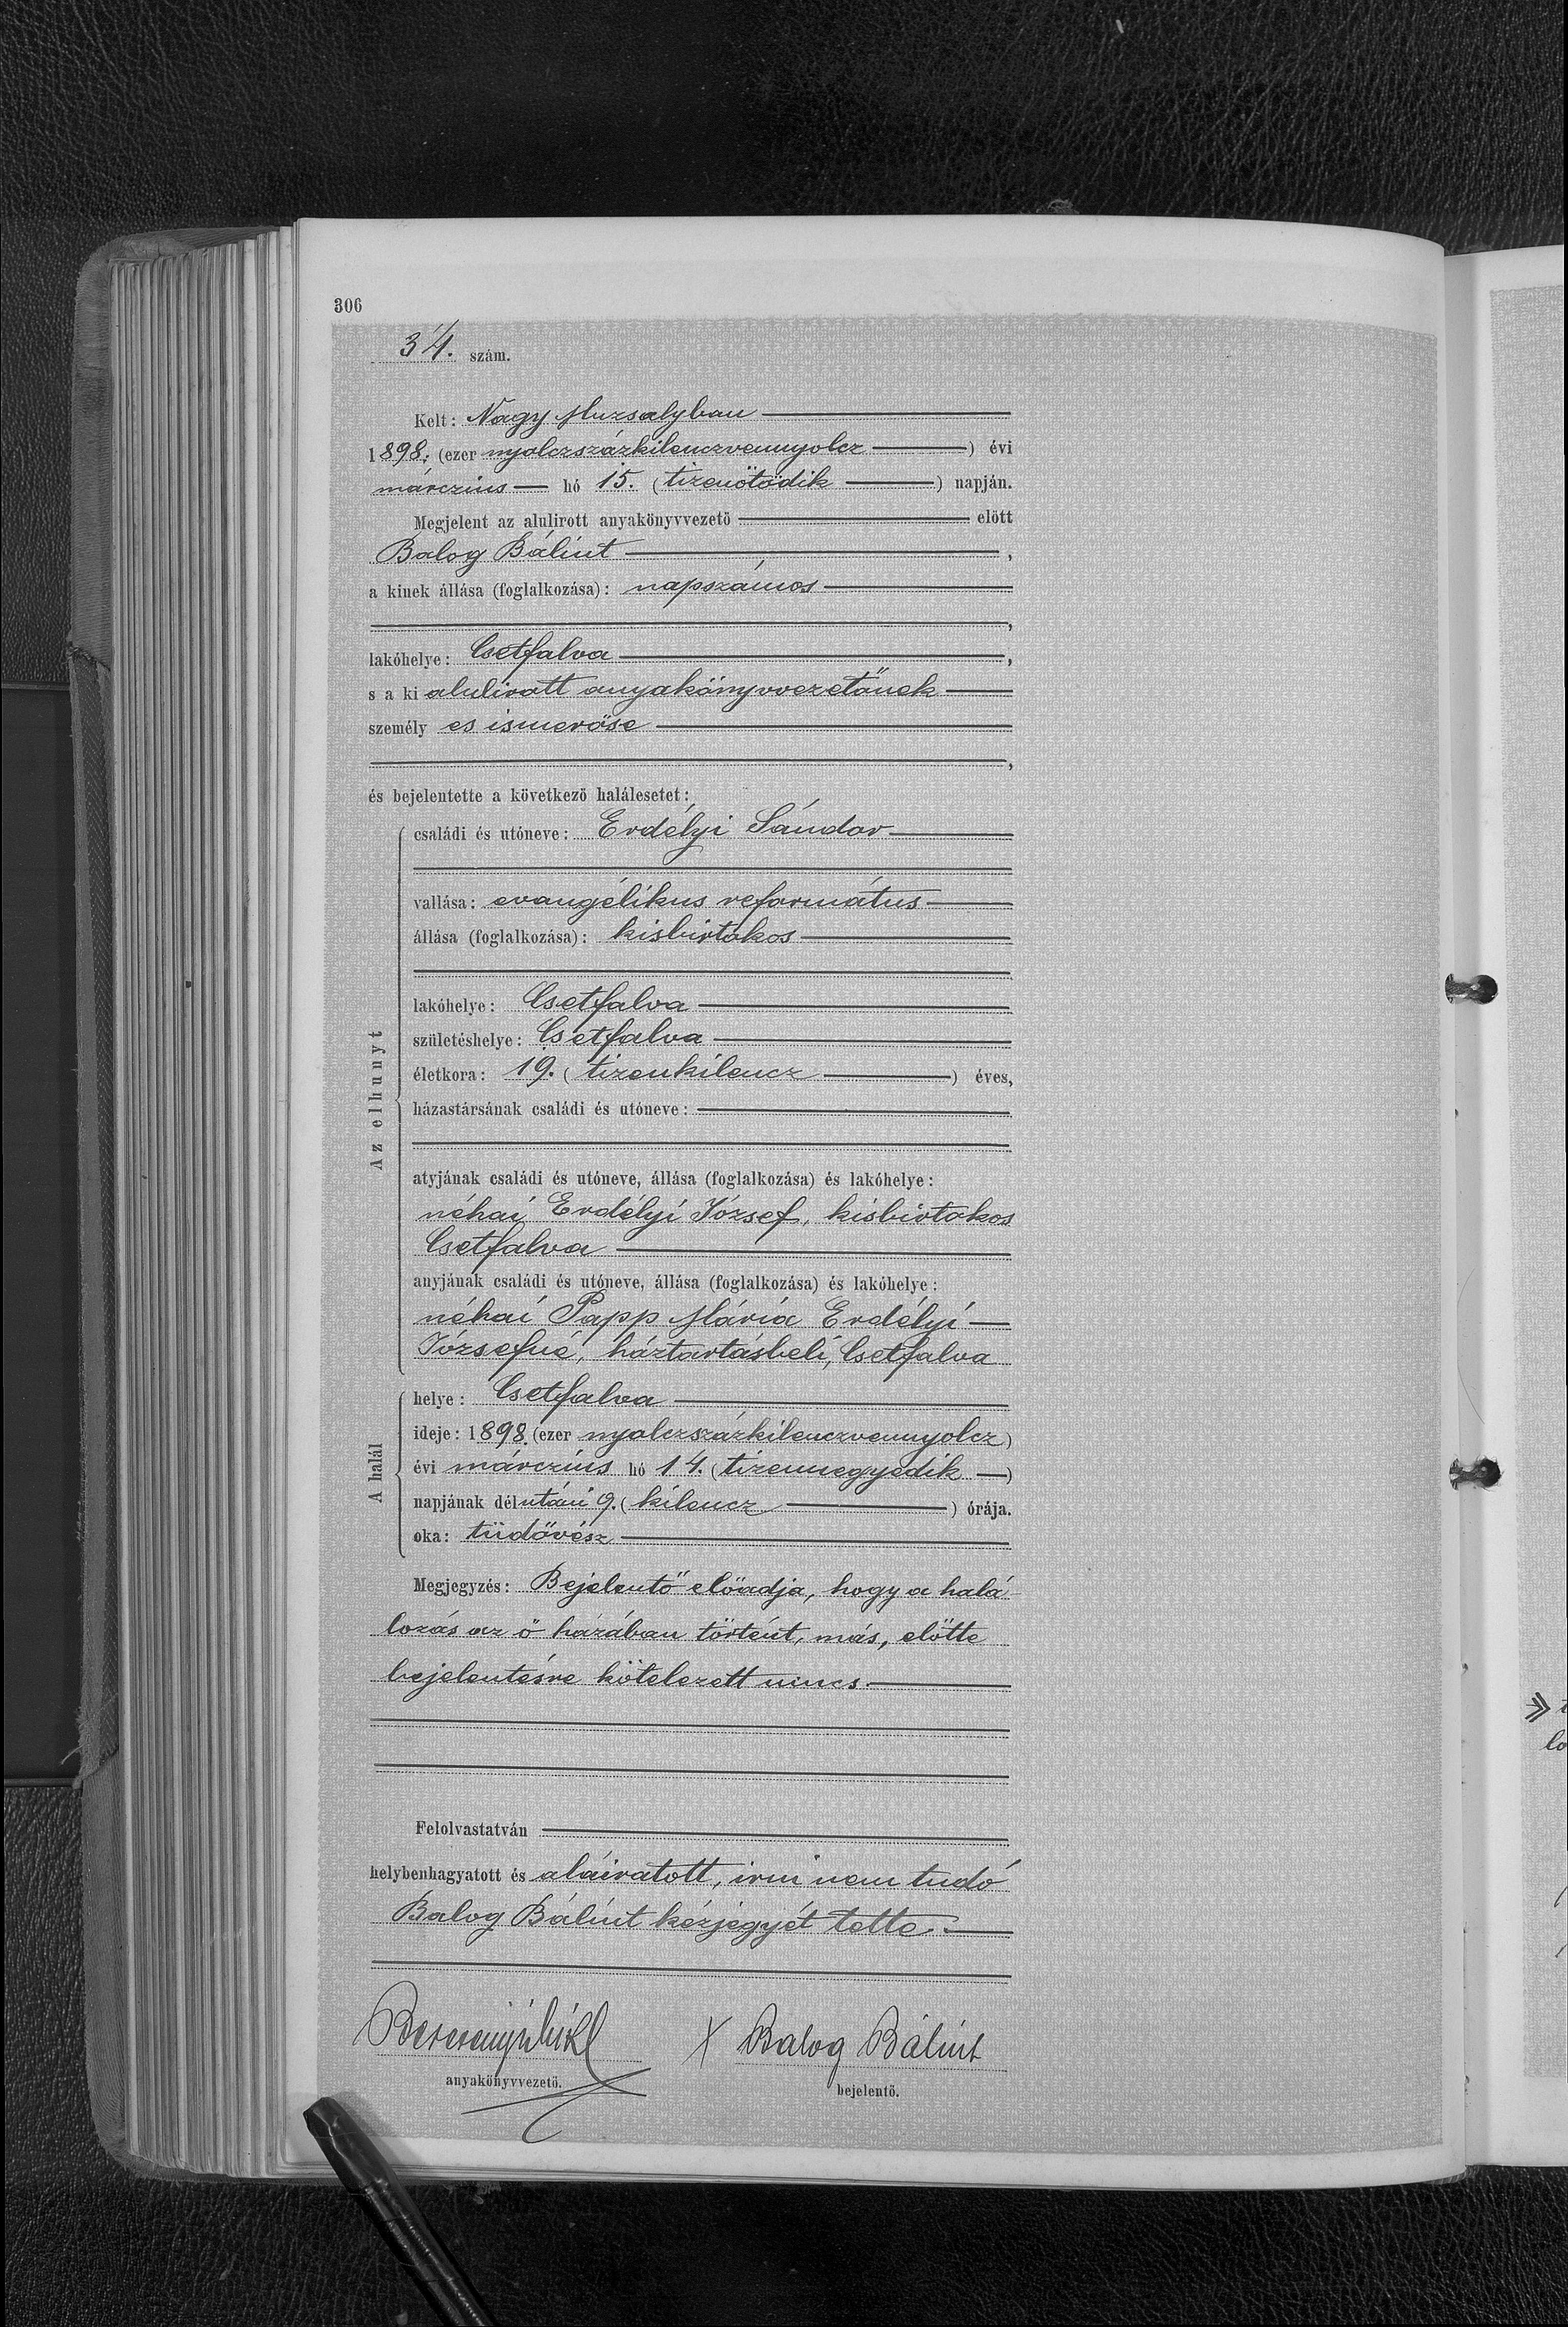 306
34. szám.
Kelt: Nagy Muzsalyban
1898. (ezer nyolczszázkilenczvennyolcz) évi
márczius hó 15. (tizenötödik) napján.
Megjelent az alulirott anyakönyvvezetö elött
Balog Bálint,
a kinek állása (foglalkozása): napszámos
,
lakóhelye: Csetfalva,
s a ki alulirott anyakönyvvezetőnek
személy es ismerőse
,
és bejelentette a következö halálesetet:
Az elhunyt
családi és utóneve: Erdélyi Sándor
vallása: evangélikus református
állása (foglalkozása): kisbirtokos
lakóhelye: Csetfalva
születéshelye: Csetfalva
életkora: 19. (tizenkilencz) éves,
házastársának családi és utóneve:
atyjának családi és utóneve, állása (foglalkozása) és lakóhelye:
néhai Erdélyi József, kisbirtokos
Csetfalva
anyjának családi és utóneve, állása (foglalkozása) és lakóhelye:
néhai Papp Mária Erdélyi
Józsefné, háztartásbeli, Csetfalva
A halál
helye: Csetfalva
ideje: 1898. (ezer nyolczszázkilenczvennyolcz)
évi márczius hó 14. (tizennegyedik)
napjának délutáni 9. (kilencz) órája.
oka: tüdővész
Megjegyzés: Bejelentő előadja, hogy a halá
lozás az ő házában történt, más, előtte
bejelentésre kötelezett nincs.
Felolvastatván
helybenhagyatott és aláiratott, irni nem tudó
Balog Bálint kézjegyét tette.
X Balog Bálint
anyakönyvvezetö. bejelentö.